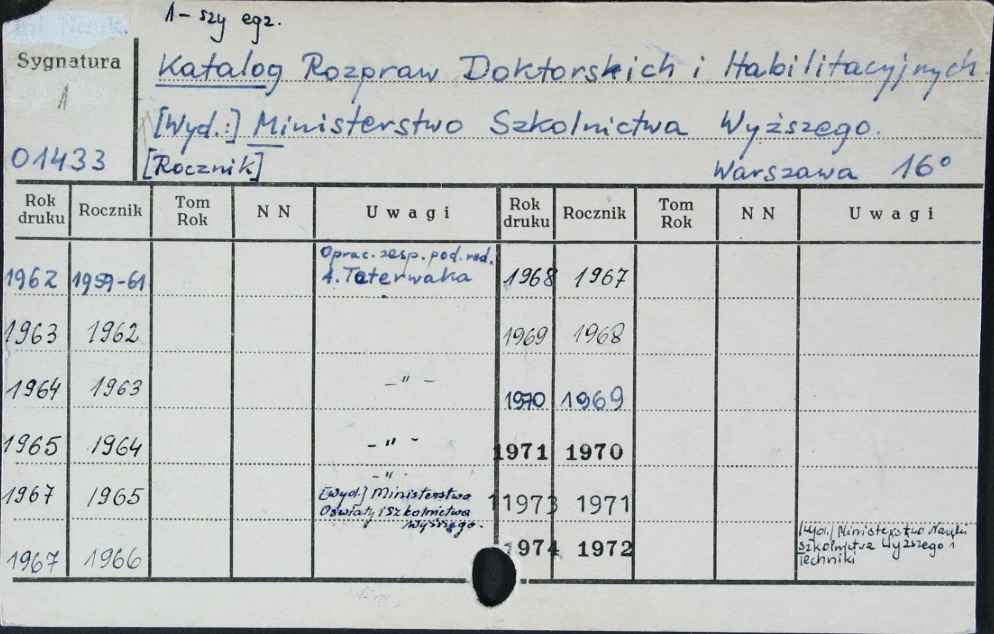 1-szy egz.
Sygnatura
1
01433
Katalog Rozpraw Doktorskich i Habilitacyjnych.
[Wyd.:] Ministerstwo Szkolnictwa Wyższego.
[Rocznik] Warszawa 16°
Rok druku Rocznik Tom Rok N N Uwagi Rok druku Rocznik Tom Rok N N Uwagi
Oprac. zesp. pod. red.
1962 1959-61 A. Taterwaka 1968 1967
1963 1962 1969 1968
1964 1963 -"- 1970 1969
1965 1964 -"- 1971 1970
-"-
1967 1965 [Wyd.] Ministerstwo 11973 1971
Oświaty i Szkolnictwa
Wyższego.
1967 1966 1974 1972 [Wyd.] Ministerstwo Nauki
Szkolnictwa Wyższego i
Techniki